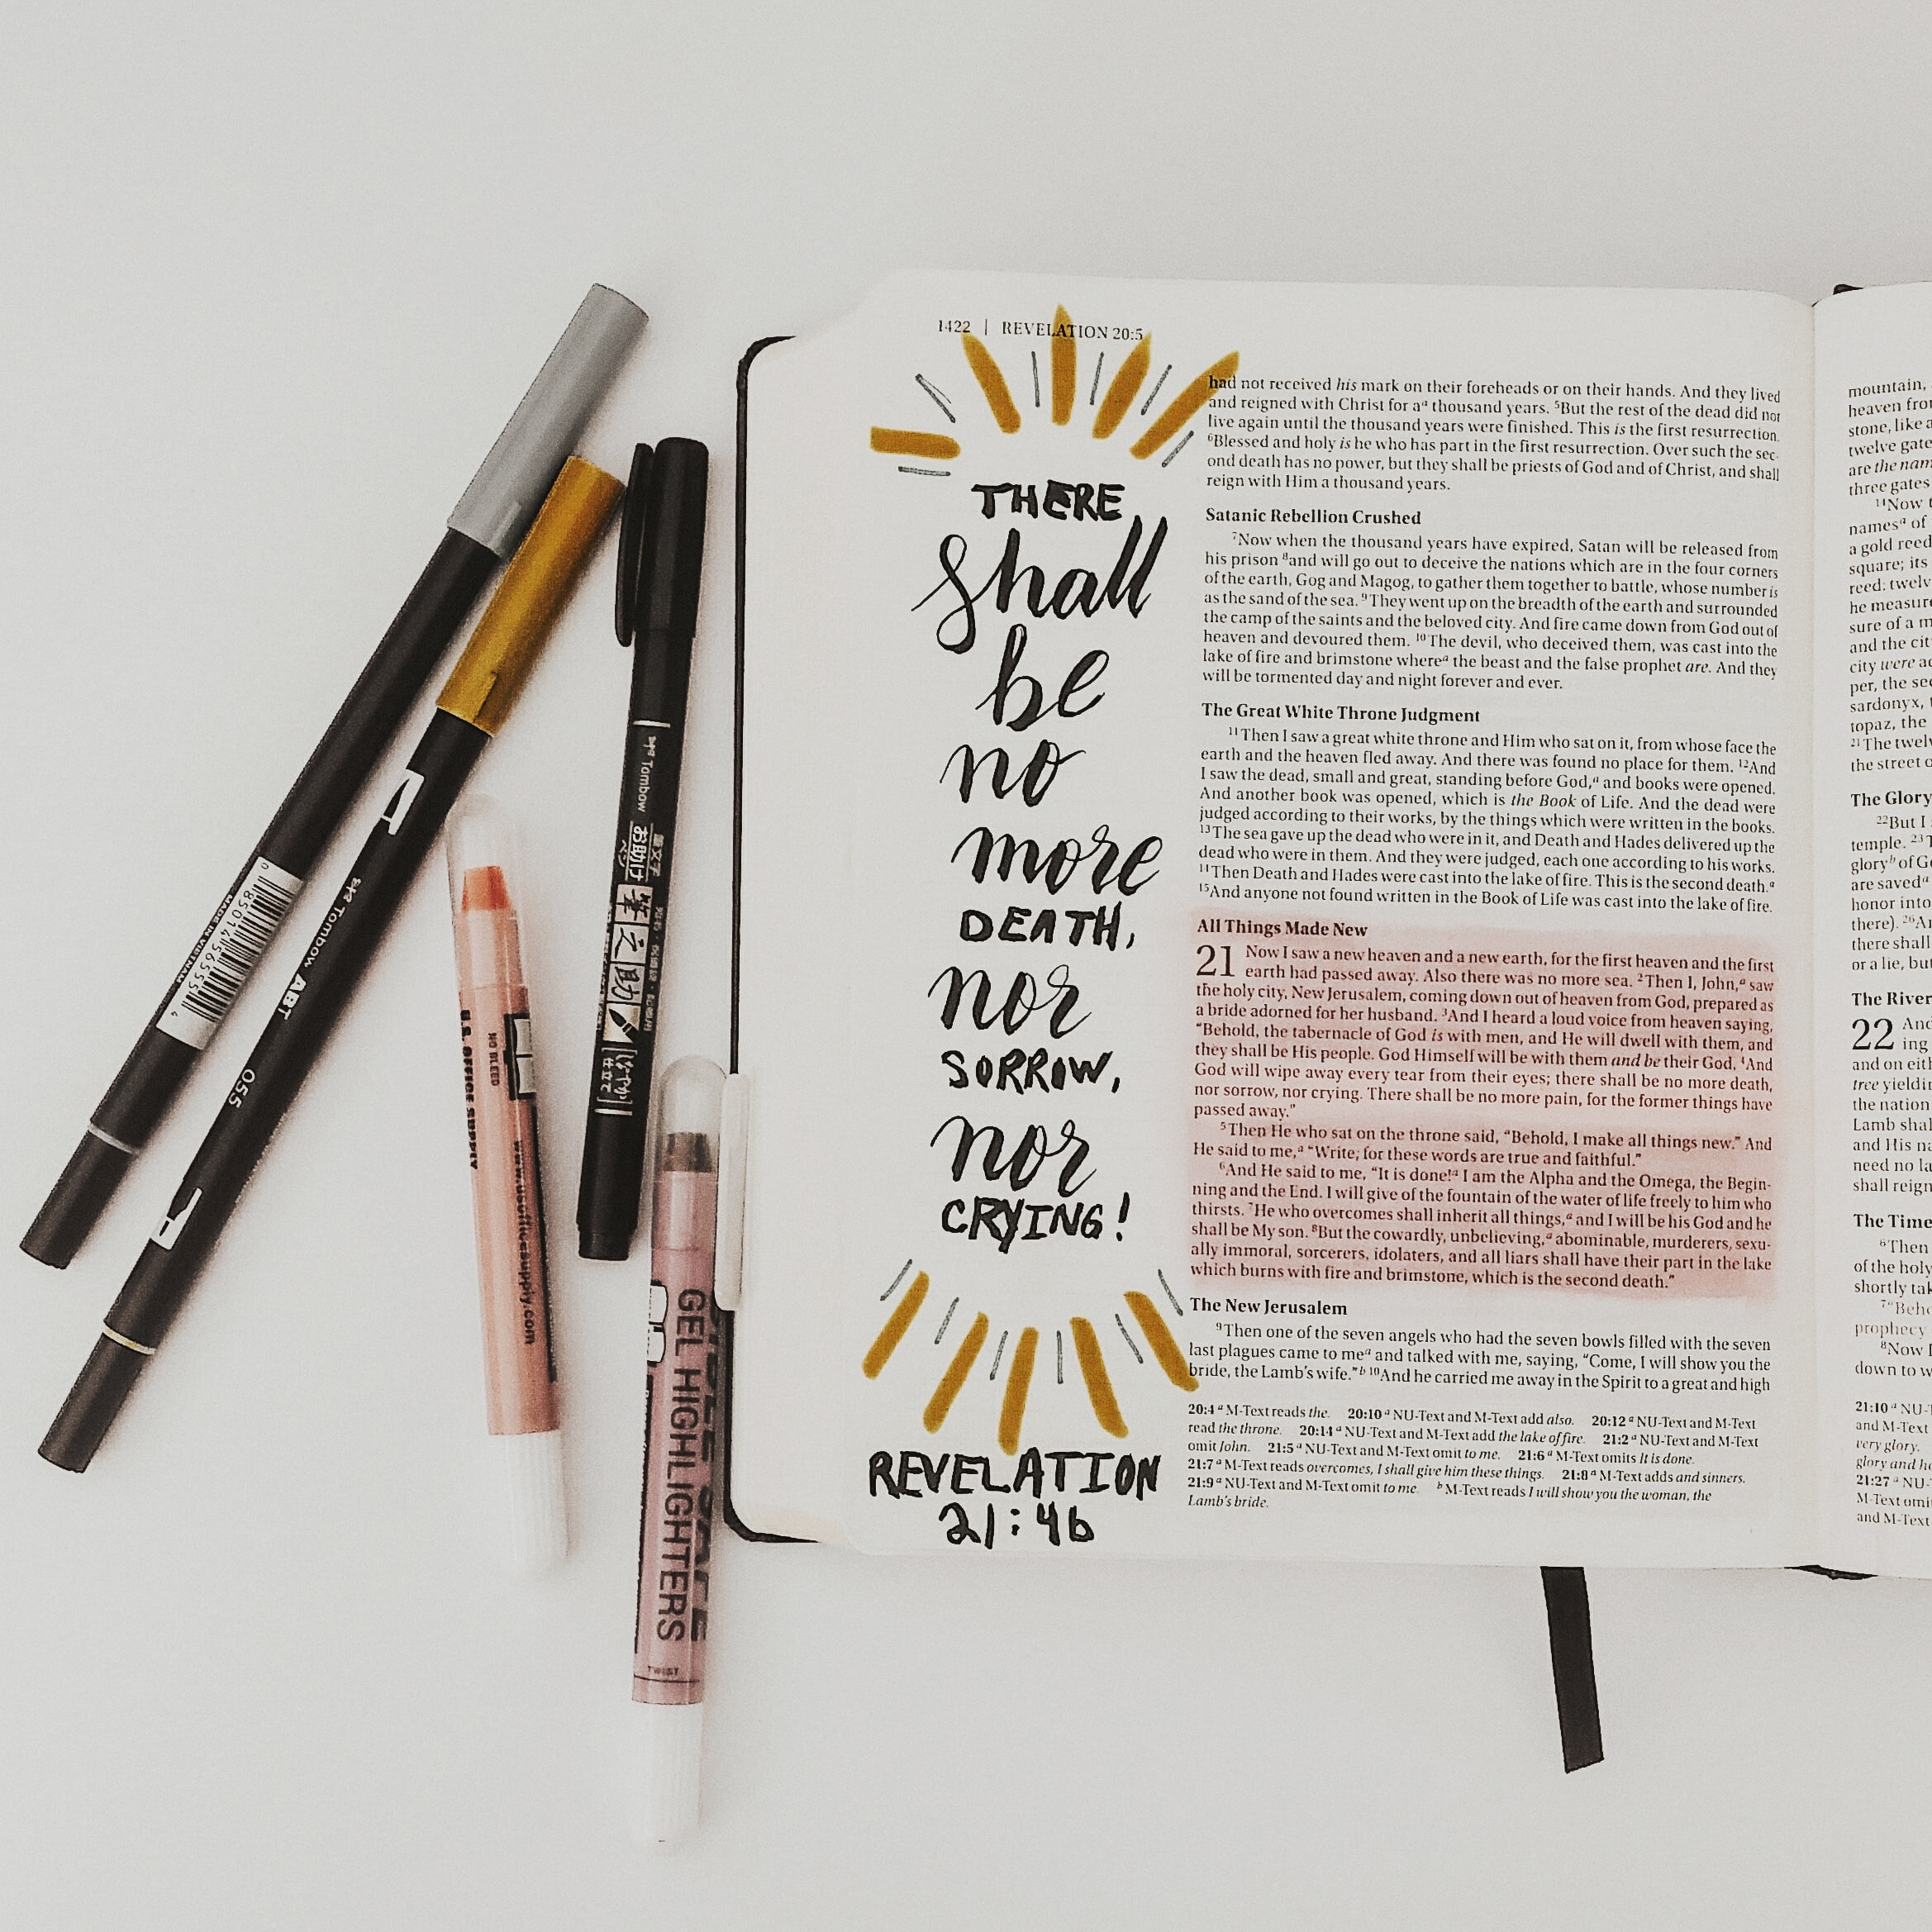 1422 | REVELATION 20:5
THERE
shall
be
no
more
DEATH,
nor
SORROW,
nor
CRYING!
REVELATION
21:4b
had not received his mark on their foreheads or on their hands. And they lived
and reigned with Christ for aᵃ thousand years. ⁵But the rest of the dead did not
live again until the thousand years were finished. This is the first resurrection.
⁶Blessed and holy is he who has part in the first resurrection. Over such the sec-
ond death has no power, but they shall be priests of God and of Christ, and shall
reign with Him a thousand years.
Satanic Rebellion Crushed
⁷Now when the thousand years have expired, Satan will be released from
his prison ⁸and will go out to deceive the nations which are in the four corners
of the earth, Gog and Magog, to gather them together to battle, whose number is
as the sand of the sea. ⁹They went up on the breadth of the earth and surrounded
the camp of the saints and the beloved city. And fire came down from God out of
heaven and devoured them. ¹⁰The devil, who deceived them, was cast into the
lake of fire and brimstone whereᵃ the beast and the false prophet are. And they
will be tormented day and night forever and ever.
The Great White Throne Judgment
¹¹Then I saw a great white throne and Him who sat on it, from whose face the
earth and the heaven fled away. And there was found no place for them. ¹²And
I saw the dead, small and great, standing before God,ᵃ and books were opened.
And another book was opened, which is the Book of Life. And the dead were
judged according to their works, by the things which were written in the books.
¹³The sea gave up the dead who were in it, and Death and Hades delivered up the
dead who were in them. And they were judged, each one according to his works.
¹⁴Then Death and Hades were cast into the lake of fire. This is the second death.ᵃ
¹⁵And anyone not found written in the Book of Life was cast into the lake of fire.
All Things Made New
21 Now I saw a new heaven and a new earth, for the first heaven and the first
earth had passed away. Also there was no more sea. ²Then I, John,ᵃ saw
the holy city, New Jerusalem, coming down out of heaven from God, prepared as
a bride adorned for her husband. ³And I heard a loud voice from heaven saying,
“Behold, the tabernacle of God is with men, and He will dwell with them, and
they shall be His people. God Himself will be with them and be their God. ⁴And
God will wipe away every tear from their eyes; there shall be no more death,
nor sorrow, nor crying. There shall be no more pain, for the former things have
passed away.”
⁵Then He who sat on the throne said, “Behold, I make all things new.” And
He said to me,ᵃ “Write, for these words are true and faithful.”
⁶And He said to me, “It is done!ᵃ I am the Alpha and the Omega, the Begin-
ning and the End. I will give of the fountain of the water of life freely to him who
thirsts. ⁷He who overcomes shall inherit all things,ᵃ and I will be his God and he
shall be My son. ⁸But the cowardly, unbelieving,ᵃ abominable, murderers, sexu-
ally immoral, sorcerers, idolaters, and all liars shall have their part in the lake
which burns with fire and brimstone, which is the second death.”
The New Jerusalem
⁹Then one of the seven angels who had the seven bowls filled with the seven
last plagues came to meᵃ and talked with me, saying, “Come, I will show you the
bride, the Lamb’s wife.”ᵇ ¹⁰And he carried me away in the Spirit to a great and high
20:4 ᵃ M-Text reads the. 20:10 ᵃ NU-Text and M-Text add also. 20:12 ᵃ NU-Text and M-Text
read the throne. 20:14 ᵃ NU-Text and M-Text add the lake of fire. 21:2 ᵃ NU-Text and M-Text
omit John. 21:5 ᵃ NU-Text and M-Text omit to me. 21:6 ᵃ M-Text omits It is done.
21:7 ᵃ M-Text reads overcomes, I shall give him these things. 21:8 ᵃ M-Text adds and sinners.
21:9 ᵃ NU-Text and M-Text omit to me. ᵇ M-Text reads I will show you the woman, the
Lamb’s bride.
mountain,
heaven
stone, like
twelve
are the
three gates
¹⁴Now
namesᵃ of
a gold reed
square; its
reed:
he
sure of a
and the
city were
per, the
sardonyx,
topaz, the
²¹The
the street
The Glory
²²But I
temple. ²³
gloryᵇ of
are savedᵃ
honor into
there). ²⁶
there shall
or a lie, but
The River
22 And
ing
and on
tree
the nation
Lamb
and His
need no
shall reign
The Time
⁶Then
of the holy
shortly
⁷“
prophecy
⁸Now
down to
21:10 ᵃ
and M-Text
very glory.
glory and
21:27 ᵃ
M-Text
and M-Text
MADE IN VIETNAM
0 85014 56555 4
Tombow ABT
055
Tombow
筆文字
お助け
ペン
筆之助
しっかり
仕立て
U.S. OFFICE SUPPLY
NO BLEED
www.usofficesupply.com
BIBLE SAFE
GEL HIGHLIGHTERS
TWIST